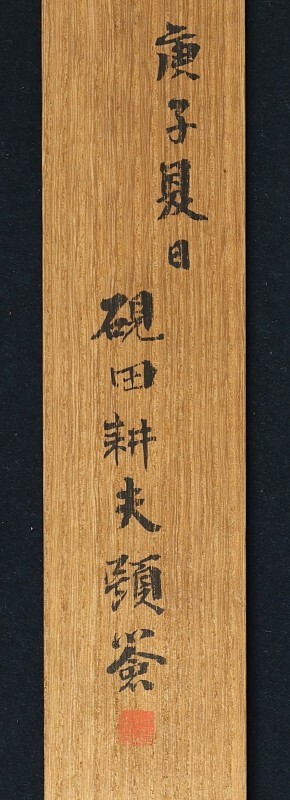 庚子夏日
硯田耕夫題簽